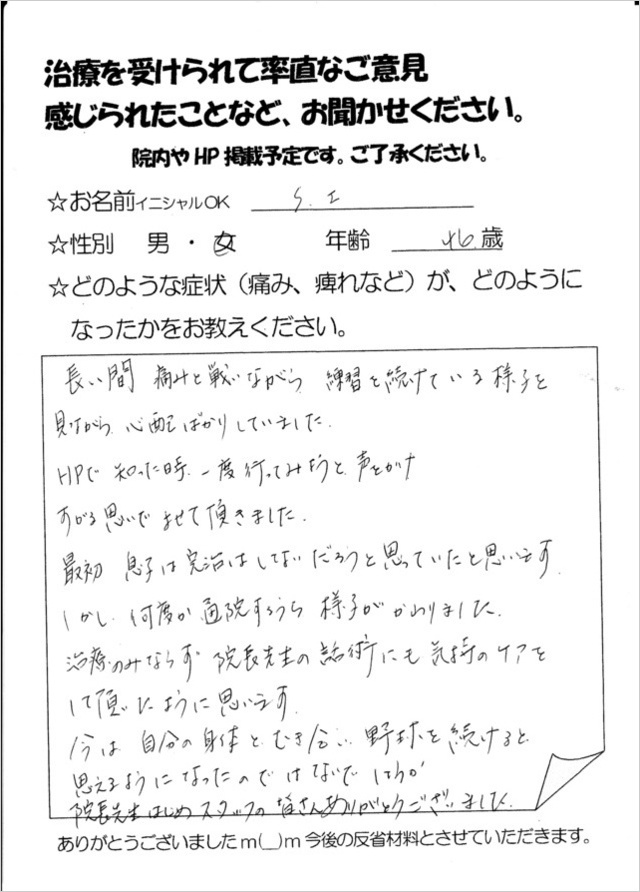 治療を受けられて率直なご意見
感じられたことなど、お聞かせください。
院内やHP掲載予定です。ご了承ください。
☆お名前イニシャルOK S.I
☆性別 男・女 年齢 46歳
☆どのような症状（痛み、痺れなど）が、どのように
なったかをお教えください。
長い間 痛みと戦いながら 練習を続けている様子を
見ながら 心配ばかりしていました.
HPで 知った時 一度行ってみようと 声をかけ
すがる思いで 来させて頂きました.
最初 息子は完治はしないだろうと思っていたと思います
しかし 何度か通院するうち 様子が かわりました.
治療のみならず 院長先生の話術にも 気持のケアを
して頂いたように思います.
今は 自分の身体と むき合い 野球を続けると
思えるようになったのではないでしょうか
院長先生はじめ スタッフの皆さんありがとうございました.
ありがとうございましたm(__)m今後の反省材料とさせていただきます。